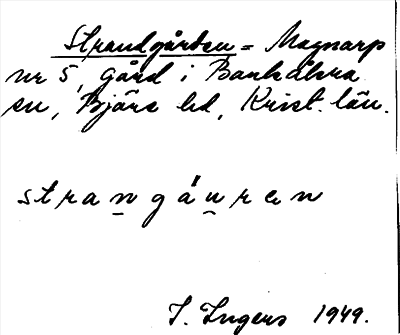 Strandgården = Magnarp
nr 5, gård i Barkåkra
sn, Bjäre hd, Krist. län.
strangåuren
I. Ingers 1949.